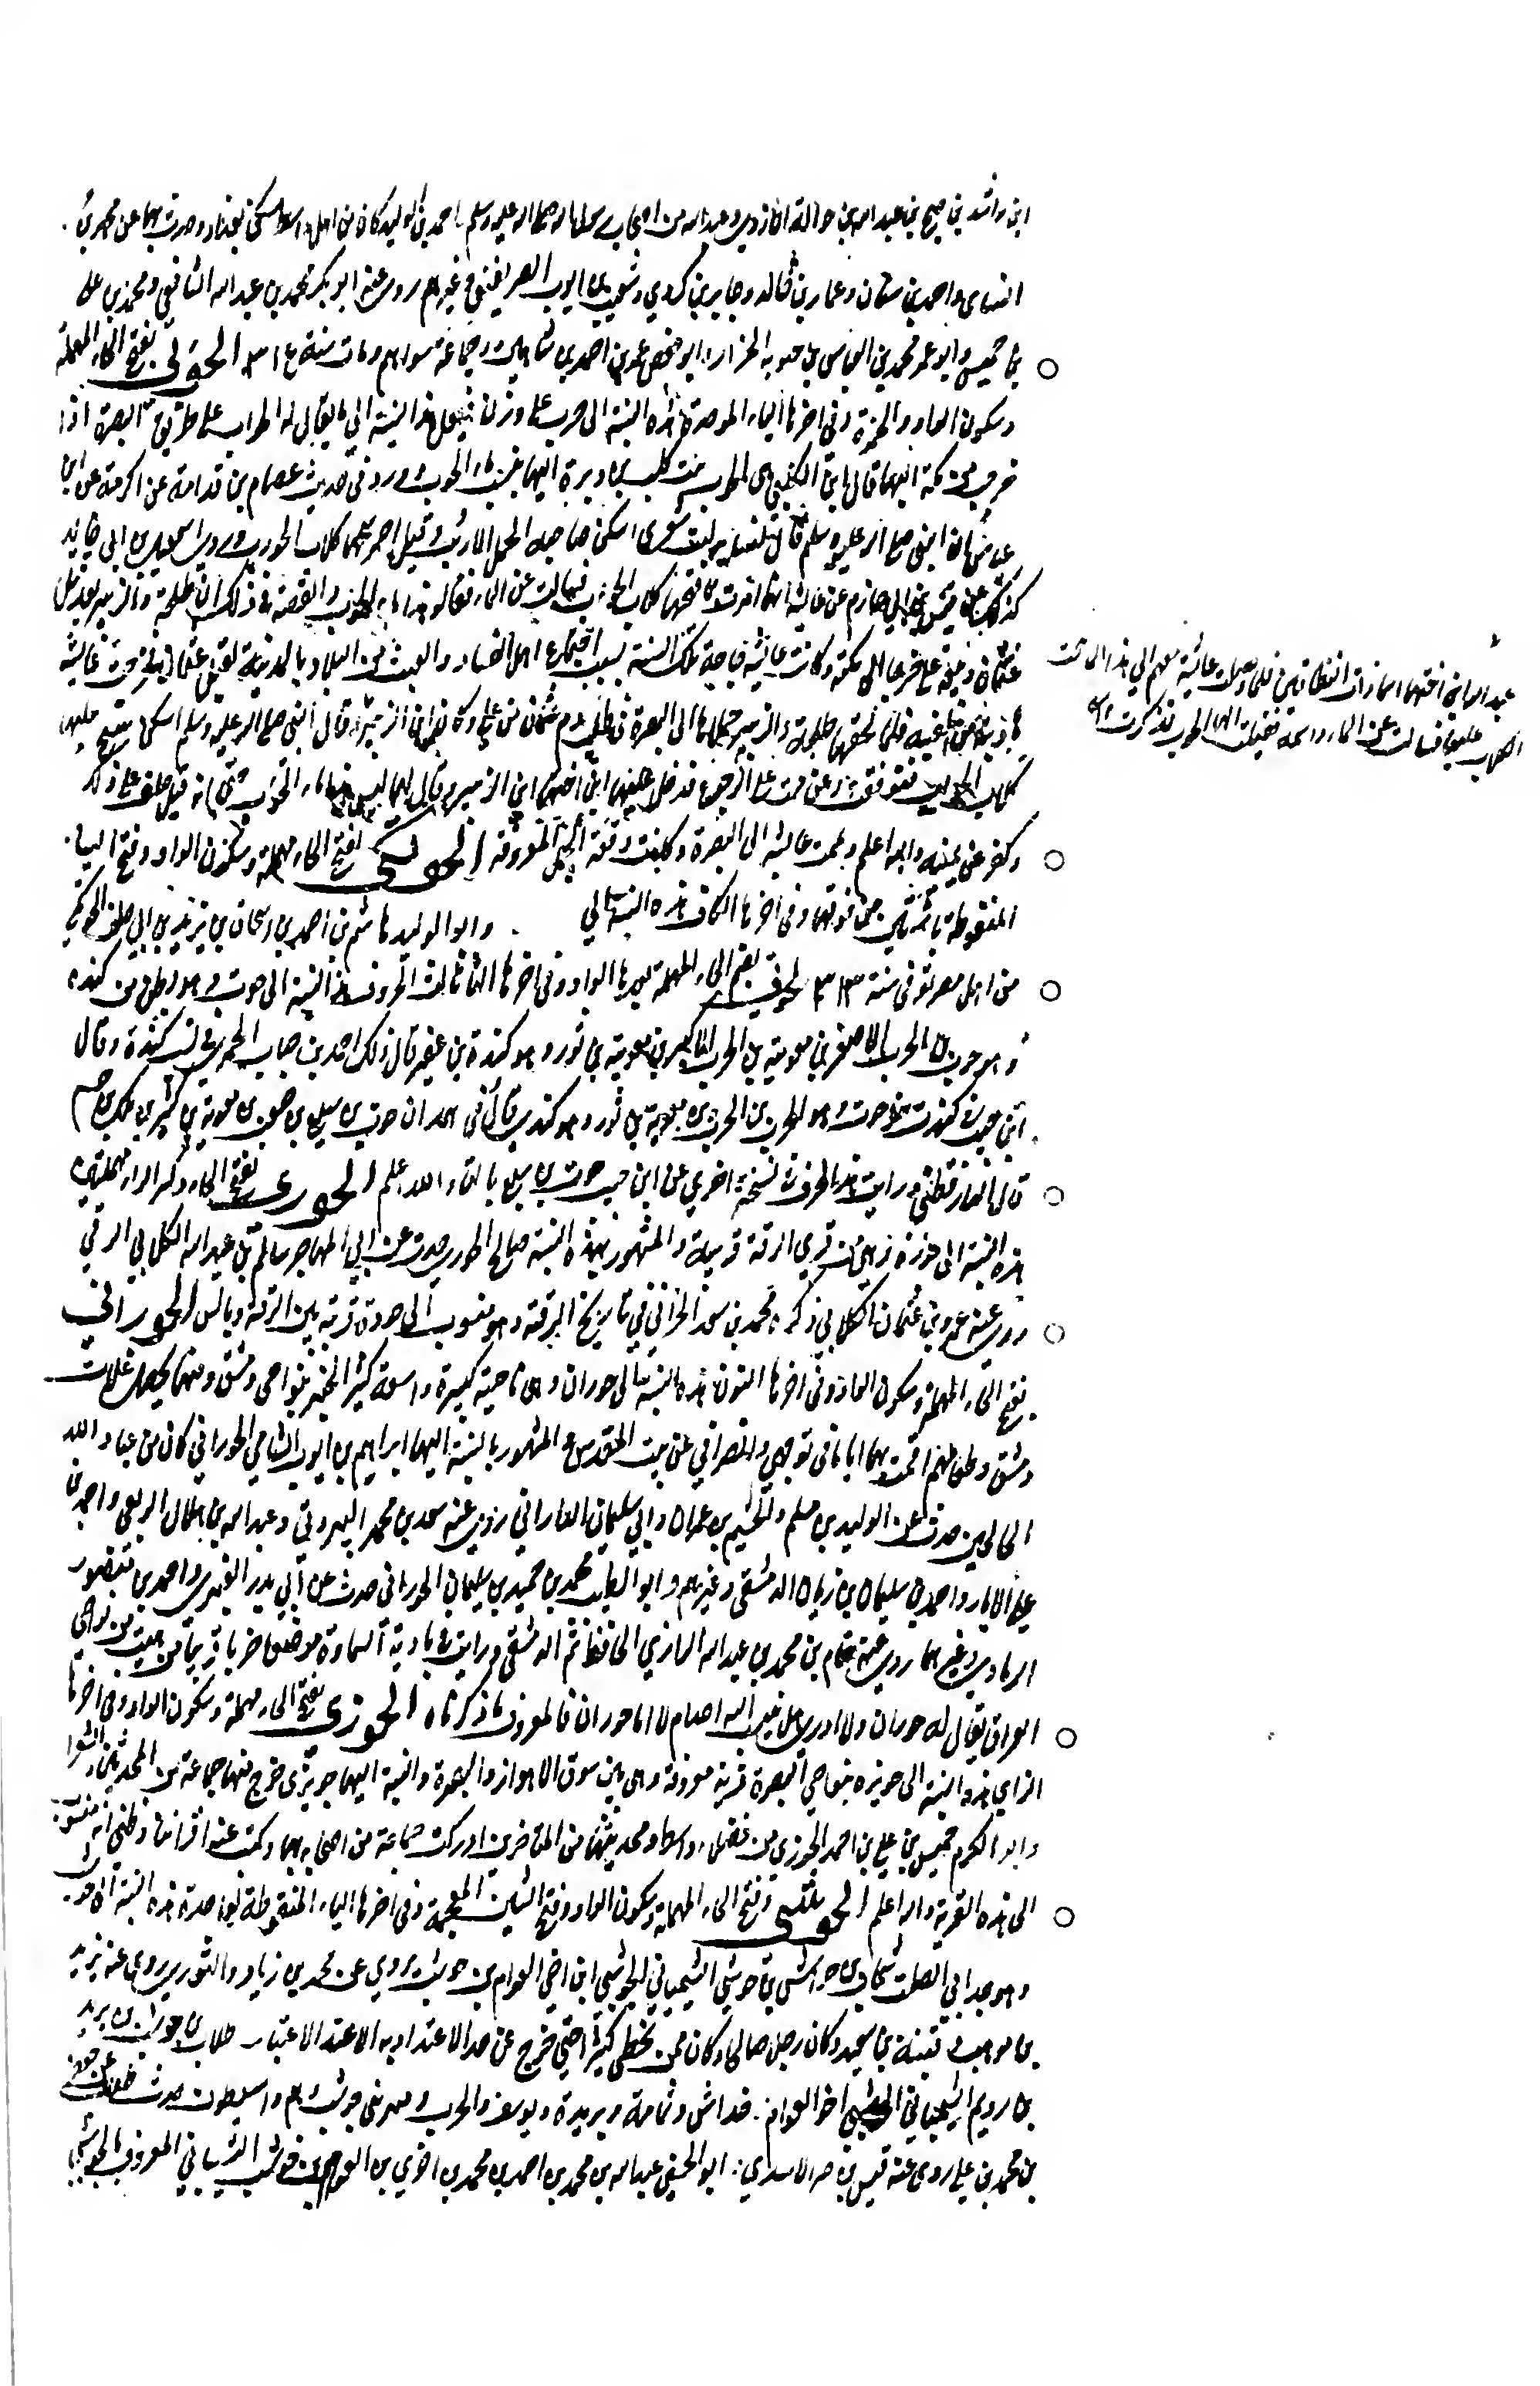 ابن راشد بن صبيح بن عبد الله بن حوالة الازدي وعبد الله من اصحاب رسول الله صلى الله عليه وسلم احمد بن الوليد كان من اهل واسط سكن بغداد وحدث بها عن محمد بن
واحمد بن سنان وعمار بن خالد وجابر بن كردي وشعيب بن ايوب الصريفيني وغيرهم روى عنه ابو بكر محمد بن عبد الله الشافعي ومحمد بن علي
بن حبيش وابو عمر محمد بن العباس بن حيويه الخزاز وابو حفص عمر بن احمد بن شاهين وجماعة سواهم ومات سنة الحوئبي بفتح الحاء المهملة
وسكون الواو والهمزة وفي اخرها الباء الموحدة هذه النسبة الى حوب على وزن فيعل هذا النسبة الى ما يقال له الحواب على طريق البصرة اذا
خرجت من مكة اليها قال ابن الكلبي هي الحواب بنت كلب بن وبرة اليها ينسب ماء الحوب وورد في حديث عصام بن قدامة عن عكرمة عن ابن
عباس ان النبي صلى الله عليه وسلم قال لنسائه ليت شعري ايتكن صاحبة الجمل الادبب وقيل احمر تنبحها كلاب الحوب وروى اسمعيل بن ابي خالد
كذلك عن قيس بن ابي حازم عن عايشة انها مرت بماء فنبحتها كلاب الحوب فسالت عن الماء فقالوا هذا ماء الحوب والقصة في ذلك ان طلحة والزبير بعد قتل
عثمان وبيعة علي خرجا الى مكة وكانت عايشة حاجة تلك السنة بسبب اجتماع اهل الفساد والعيث من البلاد بالمدينة لقتل عثمان فخرجت عايشة
هاربة من الفتنة فلما لحقها طلحة والزبير حملاها الى البصرة في طلب دم عثمان من علي وكان ابن الزبير قال النبي صلى الله عليه وسلم ايتكن ينبح عليها
كلاب الحوب فتوقفت وعزمت على الرجوع فدخل عليها ابن اختها ابن الزبير وقال ليس هذا ماء الحوب حتى انه قيل حلف على ذلك
وكفر عن يمينه والله اعلم ويممت عايشة الى البصرة وكانت وقعة الجمل المعروفة الحوتكي بفتح الحاء المهملة وسكون الواو وفتح التاء
المنقوطة باثنتين من فوقها وفي اخرها الكاف هذه النسبة الى وابو الوليد هاشم بن احمد بن اسحاق بن يزيد بن ابي خلف الحوتكي
من اهل مصر توفي سنة ٣١٣ الحوتي بضم الحاء المهملة بعدها الواو وفي اخرها التاء ثالث الحروف هذه النسبة الى حوت وهو بطن من كندة
وهو حوت بن الحرث الاصغر بن معوية بن الحرث الاكبر بن معوية بن ثور وهو كندة بن عفير قال ذلك احمد بن حباب الحميري في نسب كندة وقال
ابن حبيب في كندة حوت وهو الحرث بن الحرث بن معوية بن ثور وهو كندي قال في همدان حوت بن سبع بن صعب بن معوية بن كثير بن ملك بن جشم
قال الدارقطني ورايت هذا الحرف في نسخة اخرى عن ابن حبيب حوث بن سبع بالثاء والله اعلم الحوري بفتح الحاء وكسر الراء المهملتين
هذه النسبة الى حورة وهي من قرى الرقة قريبة والمشهور بهذه النسبة صالح الحوري حدث عن ابي المهاجر سالم بن عبد الله الكلابي الرقي
روى عنه عمرو بن عثمان الكلابي ذكره محمد بن سعد الحراني في تاريخ الرقة وهو منسوب الى حورة قرية بين الرقة وبالس الحوراني
بفتح الحاء المهملة وسكون الواو وفي اخرها النون هذه النسبة الى حوران وهي ناحية كبيرة واسعة كثير الخير بنواحي دمشق ومنها يحصل غلات
دمشق وطعامهم اقمت بها اياما في توجهي وانصرافي عن بيت المقدس والمشهور بالنسبة اليها ابراهيم بن ايوب الشامي الحوراني كان من عباد الله
الصالحين حدث عن الوليد بن مسلم والهيثم بن عمران وابي سليمان الداراني روى عنه سعد بن محمد البيروتي وعبد الله بن هلال الربعي واحمد بن
علي الابار واحمد بن سليمان بن زبان الدمشقي وغيرهم وابو الطيب محمد بن حميد بن سليمان الحوراني حدث عن ابي بدر الغبري واحمد بن منصور
الرمادي وغيرهما روى عنه تمام بن محمد بن عبد الله الرازي الحافظ ثم الدمشقي ورايت في بادية السماوة موضعا خرابا قريبا من هيت من نواحي
العراق يقال له حوران ولا ادري هل ينسب اليه احد ام لا اما حوران فالمعروف ما ذكرناه الحوزي بفتح الحاء المهملة وسكون الواو وفي اخرها
الزاي هذه النسبة الى حويزة بنواحي البصرة قرية معروفة وهي بين سوق الاهواز والبصرة والنسبة اليها حويزي خرج منها جماعة من المحدثين والشعراء
وابو الكرم خميس بن علي بن احمد الحوزي من فضلاء واسط ومحدثيها من المتاخرين ادركت جماعة من اصحابه بها وكتبت عنه اقرانها وظني انه منسوب
الى هذه القرية والله اعلم الحوشبي بفتح الحاء المهملة وسكون الواو وفتح الشين المعجمة وفي اخرها الباء المنقوطة بواحدة هذه النسبة الى حوشب
وهو جد ابي الصلت شهاب بن خراش بن حوشب الشيباني الحوشبي ابن اخي العوام بن حوشب يروي عن محمد بن زياد والثوري روى عنه يزيد
بن موهب وقتيبة بن سعيد وكان رجل صالحا وكان ممن يخطئ كثيرا حتى خرج عن حد الاعتداد به الا عند الاعتبار طلاب بن حوشب بن يزيد
بن رويم الشيباني الحوشبي اخو العوام. خداش وثمامة وبريدة ويوسف والحرث وصهر بني حوشب هم واسطيون حدث طلاب عن جعفر
بن محمد بن علي روى عنه قيس بن الاسدي: ابو الحسين عبد الله بن محمد بن احمد بن محمد بن اخوي بن العوام بن حوشب الشيباني المعروف بالحوشبي
عبد الله ابن اختها اسماء ذات النطاقين فلما وصلت عايشة معهم الى هذا الماء نبحت
الكلاب عليها فسالت عن الماء واسمه فقيل لها الحوب فذكرت